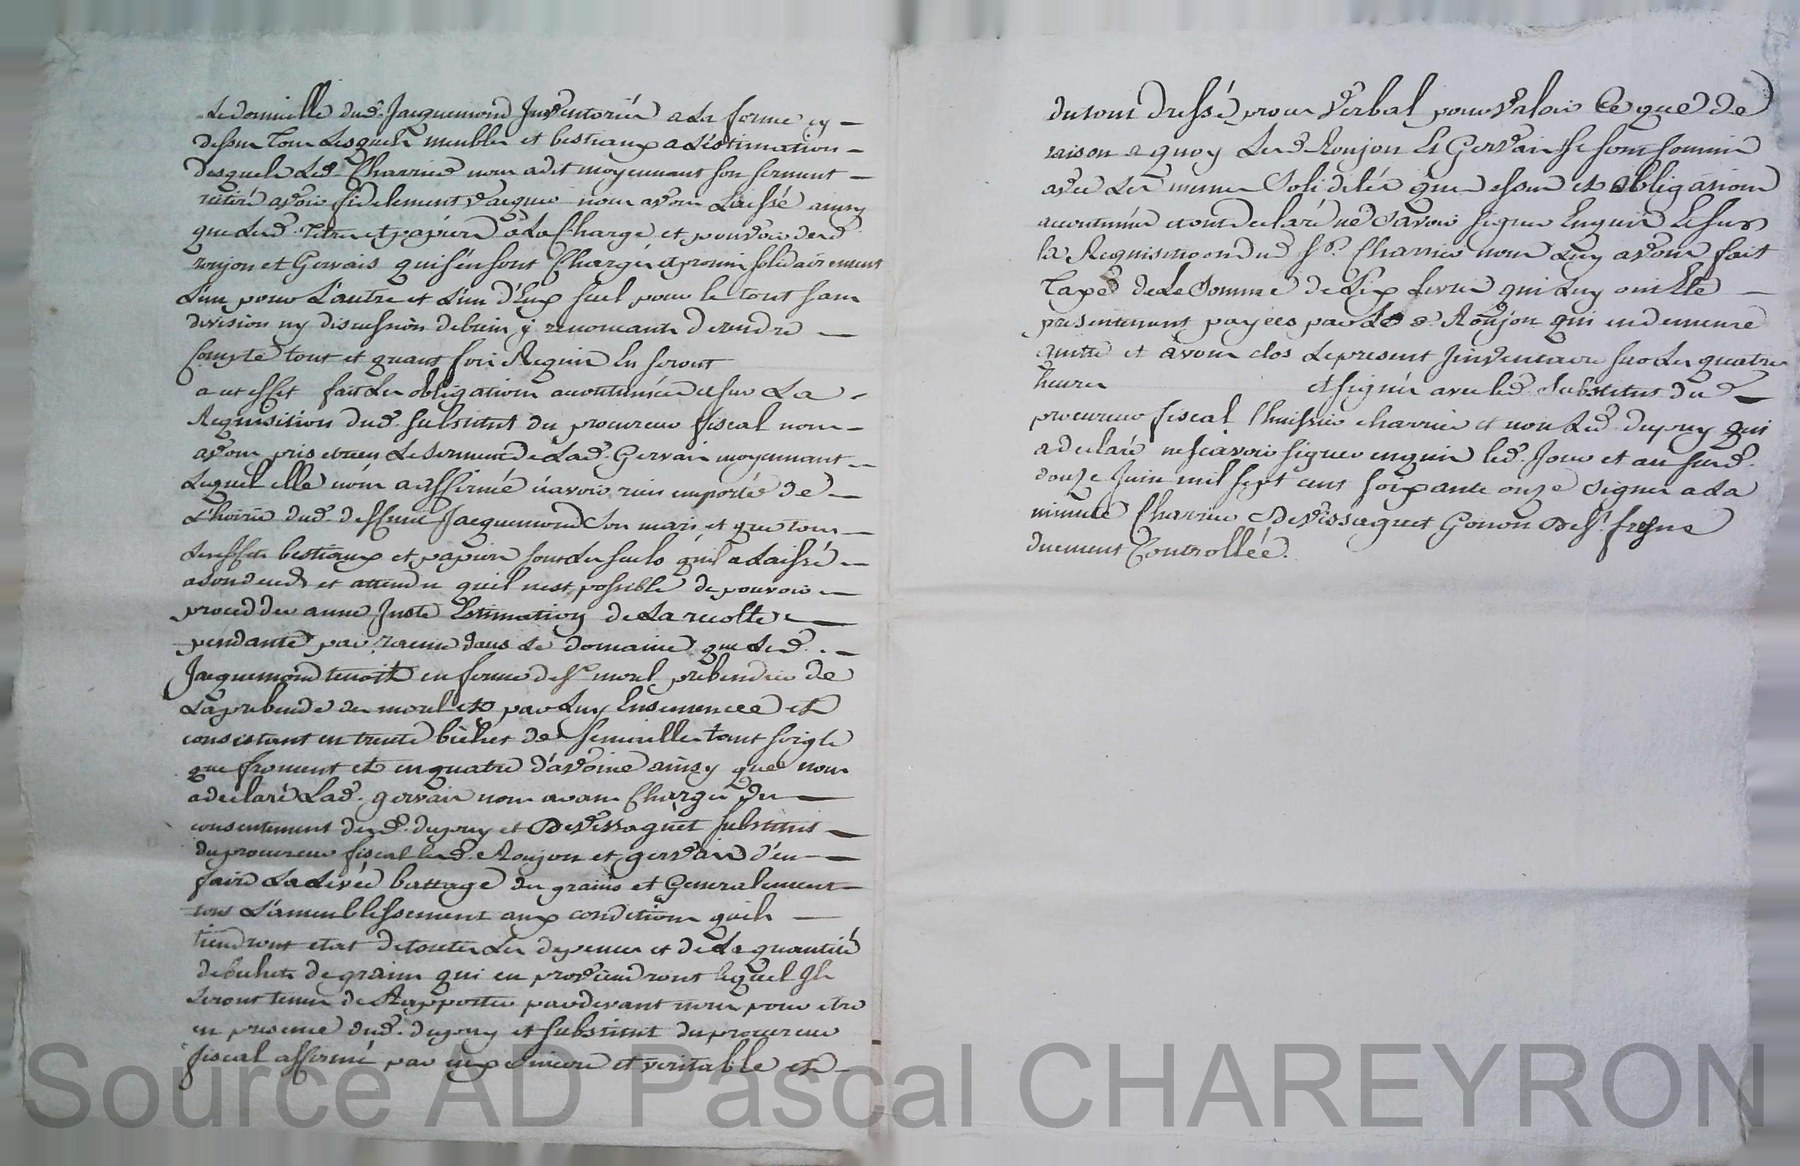 Le domicille dud. Jacquemond Inventorié a La forme cy
dessus Tous Lesquels meubles et bestiaux a L'estimation
desquels Led. Charrier nous a dit moyennant son serment
réitéré avoir fidelement vacqué nous avons Laissé ainsy
que Lesd. Titres et papiers a La Charge et pouvoir desd.
roujon et Gervais qui s'en sont Chargés et promis solidairement
L'un pour L'autre et L'un d'Eux seul pour le tout sans
division ny discussion de biens y renoncants d'en rendre
Compte tout et quant fois Requis En seront
a cet effet fait Les obligations accoutumées et sur La
Requisition dud. substitut du procureur fiscal nous
avons pris et reçu Le serment de Lad. Gervais moyennant
Lequel elle nous a affirmé n'avoir rien emporté de
L'hoirie dud. deffunt Jacquemond Son mari et que tous
Les effets bestiaux et papiers sont Les seuls qu'il a Laissé
a son deceds et attendu qu'il n'est possible de pouvoir
procedder a une Juste Estimation de La recolte
pendante par racine dans Le domaine que Led.
Jacquemond tenoit en ferme de Sr morel prebendier de
La prebende des morel et par Luy Ensemencée et
consistant en trente bichets de semailles tant seigle
que froment et en quatre d'avoine ainsy que nous
a declaré Lad. gervais nous avons Chargé du
consentement desd. dupuy et Devissaguet substitut
du procureur fiscal lesd. Roujon et gervais d'en
faire La Levée battage des grains et Generalement
tout L'ameublissement aux conditions qu'ils
tiendront etat de toutes Les depenses et de La quantité
de bichets de grains qui en proviendront lequel Ils
seront tenus de Rapporter pardevant nous pour etre
en presence dud. dupuy et substitut du procureur
fiscal affirmé par eux sincere et veritable et
du tout dressé procès Verbal pour valoir Ce que de
raison a quoy Lesd. Roujon Et Gervais se sont soumis
avec Les memes Solidités que dessus et obligations
accoutumées et ont declaré ne Savoir signer Enquis Et sur
la Requisition du Sr. Charrier nous Luy avons fait
Taxe de la Somme de Six Livres qui Luy ont Eté
presentement payées par Led. Roujon qui en demeure
quitte et avons clos Le present Inventaire sur Les quatre
heures et signés avec led. Substitut du
procureur fiscal l'huissier charrier et non Led. dupuy qui
a declaré ne sçavoir signer enquis led. Jour et an susd.
douze Juin mil sept cens soixante onze Signés a La
minute Charrier Devissaguet Gonon De St. fresne
duement Controllée.
Source AD Pascal CHAREYRON